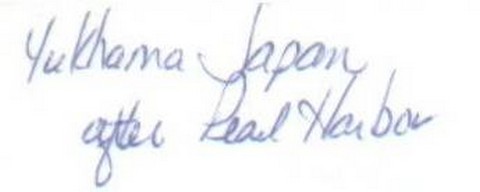 Yukhama Japan
after Pearl Harbor